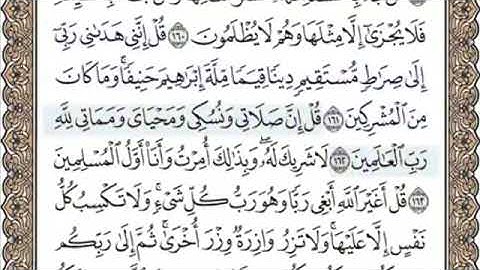 فَلَا يُجْزَىٰٓ إِلَّا مِثْلَهَا وَهُمْ لَا يُظْلَمُونَ ١٦٠ قُلْ إِنَّنِي هَدَىٰنِي رَبِّيٓ
إِلَىٰ صِرَٰطٍ مُّسْتَقِيمٍ دِينًا قِيَمًا مِّلَّةَ إِبْرَٰهِيمَ حَنِيفًا وَمَا كَانَ
مِنَ الْمُشْرِكِينَ ١٦١ قُلْ إِنَّ صَلَاتِي وَنُسُكِي وَمَحْيَايَ وَمَمَاتِي لِلَّهِ
رَبِّ الْعَٰلَمِينَ ١٦٢ لَا شَرِيكَ لَهُۥ وَبِذَٰلِكَ أُمِرْتُ وَأَنَا۠ أَوَّلُ الْمُسْلِمِينَ
١٦٣ قُلْ أَغَيْرَ اللَّهِ أَبْغِي رَبًّا وَهُوَ رَبُّ كُلِّ شَيْءٍ وَلَا تَكْسِبُ كُلُّ
نَفْسٍ إِلَّا عَلَيْهَا وَلَا تَزِرُ وَازِرَةٌ وِزْرَ أُخْرَىٰ ثُمَّ إِلَىٰ رَبِّكُم